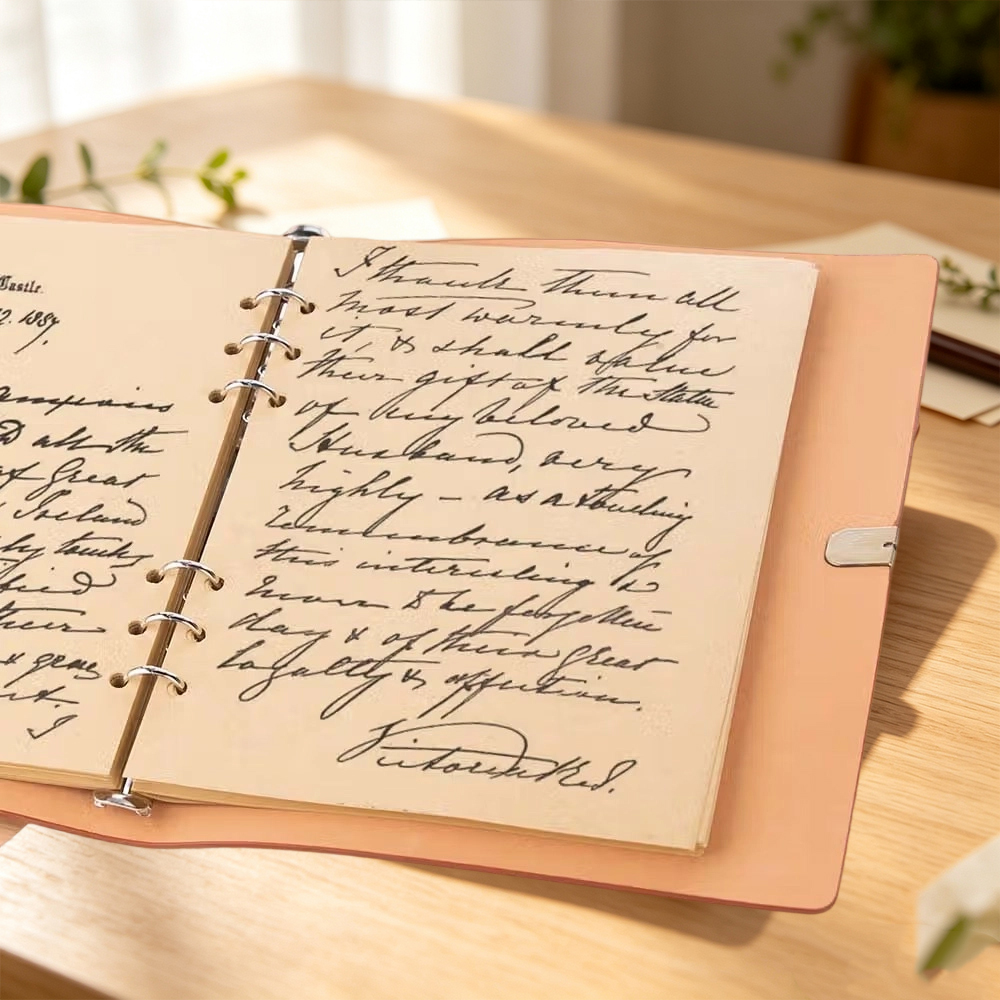 Castle.
2. 1887.
all the
of Great
Ireland
touches
their
& grate
I
I thank them all
most warmly for
it, & shall value
their gift of the Statue
of my beloved
Husband, very
highly – as a touching
remembrance of
this interesting &
never to be forgotten
day & of their great
loyalty & affection.
Victoria R&I.